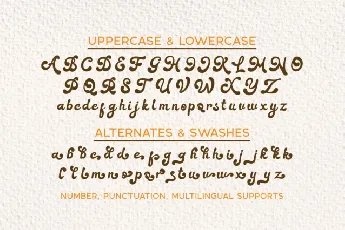 UPPERCASE & LOWERCASE
ABCDEFGHIJKLMNO
PQRSTUVWXYZ
abcdefghijklmnopqrstuvwxyz
ALTERNATES & SWASHES
NUMBER, PUNCTUATION, MULTILINGUAL SUPPORTS